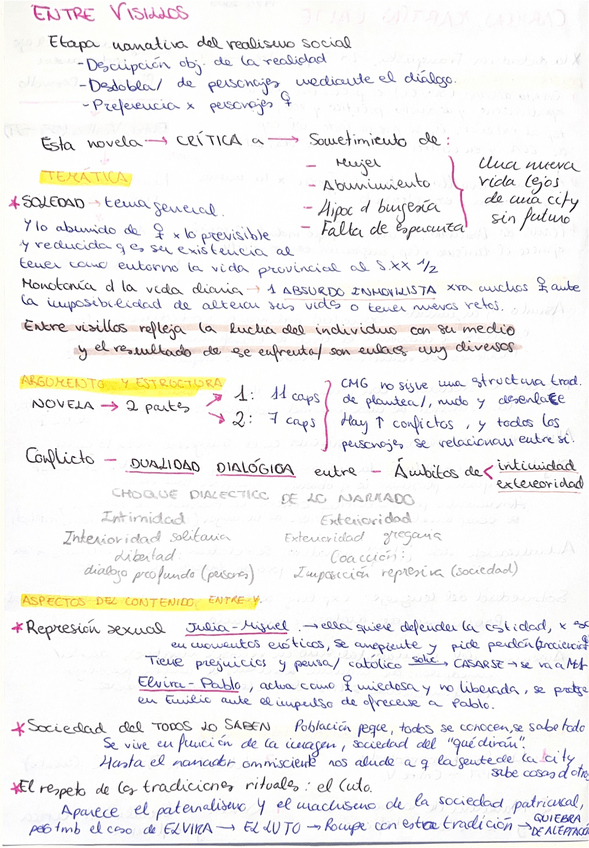 ENTRE VISILLOS
Etapa narrativa del realismo social
- Descripción obj. de la realidad
- Desdobla/ de personajes mediante el diálogo.
- Preferencia x personajes ♀
Esta novela → CRÍTICA a → Sometimiento de:
- Mujer
- Aburrimiento
- Hipoc d burgesía
- Falta de esperanza
Una nueva
vida lejos
de una city
sin futuro
TEMÁTICA
* SOLEDAD → tema general.
Y lo aburrido de ♀ x lo previsible
y reducida q es su existencia al
tener como entorno la vida provincial al S.XX 1/2
Monotonía d la vida diaria → 1 ABSURDO INMOVILISTA xra muchas ♀ ante
la imposibilidad de alterar sus vidas o tener nuevos retos.
Entre visillos refleja la lucha del individuo con su medio
y el resultado de ese enfrenta/ son enlaces muy diversos
ARGUMENTO Y ESTRUCTURA
NOVELA → 2 partes
1: 11 caps
2: 7 caps
CMG no sigue una structura trad.
de plantea/, nudo y desenlace
Hay ↑ conflictos, y todos los
personajes se relacionan entre sí.
Conflicto - DUALIDAD DIALÓGICA entre - Ámbitos de < intimidad
exterioridad
CHOQUE DIALECTICO DE LO NARRADO
Intimidad Exterioridad
Interioridad solitaria Exterioridad gregaria
libertad Coacción
dialogo profundo (personas) Imparcición represiva (sociedad)
ASPECTOS DEL CONTENIDO, ENTRE V.
* Represión sexual Julia - Miguel. → ella quiere defender la castidad, x
en momentos eróticos, se arrepiente y pide perdón
Tiene prejuicios y pensa/ católico solic → CASARSE → se va a
Elvira - Pablo, actua como ♀ miedosa y no liberada, se
en Emilio ante el impulso de ofrecerse a Pablo.
* Sociedad del TODOS LO SABEN Población peqe, todos se conocen, se sabe todo
Se vive en función de la imagen, sociedad del "qué dirán".
Hasta el narrador omnisciente nos alude a q la gente de la city
sabe cosas d
* El respeto de las tradiciones rituales: el luto.
Aparece el paternalismo y el machismo de la sociedad patriarcal,
tmb el caso de ELVIRA → EL LUTO → Rompe con esta tradición → QUIEBRA